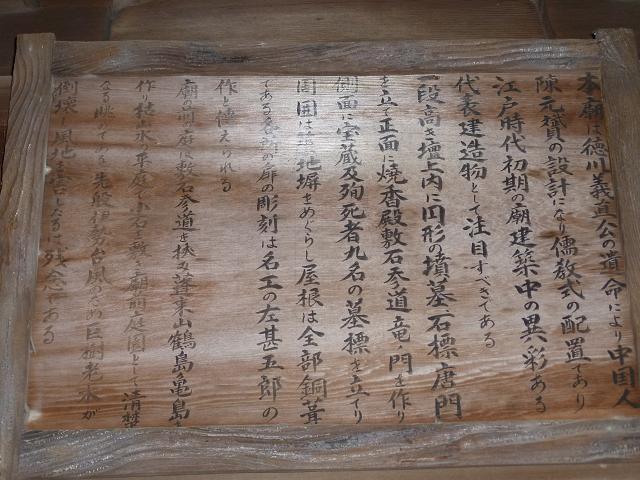 本廟は徳川義直公の遺命により中国人
陳元贇の設計になり儒教式の配置であり
江戸時代初期の廟建築中の異彩ある
代表建造物として注目すべきである
一段高き壇上内に円形の墳墓石標唐門
を立て正面に焼香殿敷石参道竜の門を作り
側面に宝蔵及殉死者九名の墓標を立てり
周囲は 地塀をめぐらし屋根は全部銅葺
である の扉の彫刻は名工の左甚五郎の
作と傳えられる
廟の前庭は敷石参道を挟み蓬来山鶴島亀島を
作 水の 庭で小石を敷 廟前庭園として清楚
なる 先般伊勢台風のため巨樹老木が
倒壊し風 に残念である